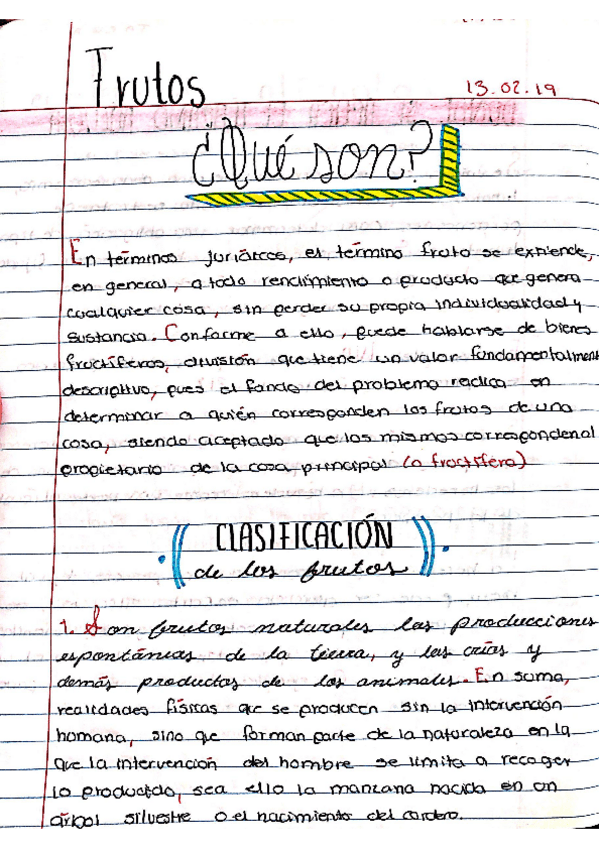 Frutos
13.02.19
¿Qué son?
En términos jurídicos, el término fruto se extiende,
en general, a todo rendimiento o producto que genera
cualquier cosa, sin perder su propia individualidad y
sustancia. Conforme a ello, puede hablarse de bienes
fructíferos, división que tiene un valor fundamentalment
descriptivo, pues el fondo del problema radica en
determinar a quién corresponden los frutos de una
cosa, siendo aceptado que los mismos corresponden al
propietario de la cosa principal (o fructífera)
CLASIFICACIÓN
de los frutos
1. Son frutos naturales las producciones
espontáneas de la tierra, y las crías y
demás productos de los animales. En suma,
realidades físicas que se producen sin la intervención
humana, sino que forman parte de la naturaleza en la
que la intervención del hombre se limita a recoger
lo producido, sea ello la manzana nacida en un
árbol silvestre o el nacimiento del cordero.